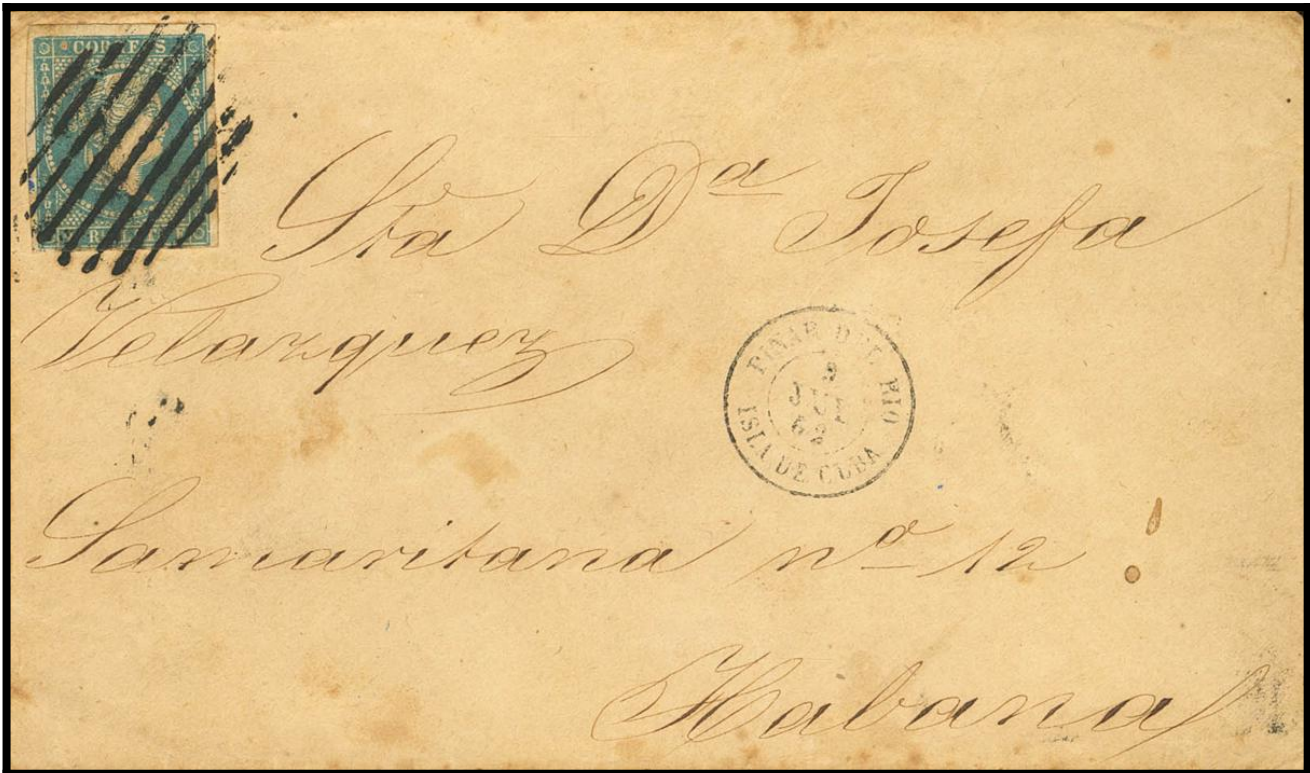 CORREOS
Sta Dª Josefa
Velazquez
PINAR DEL RIO
ISLA DE CUBA
Samaritana nº 12
Habana